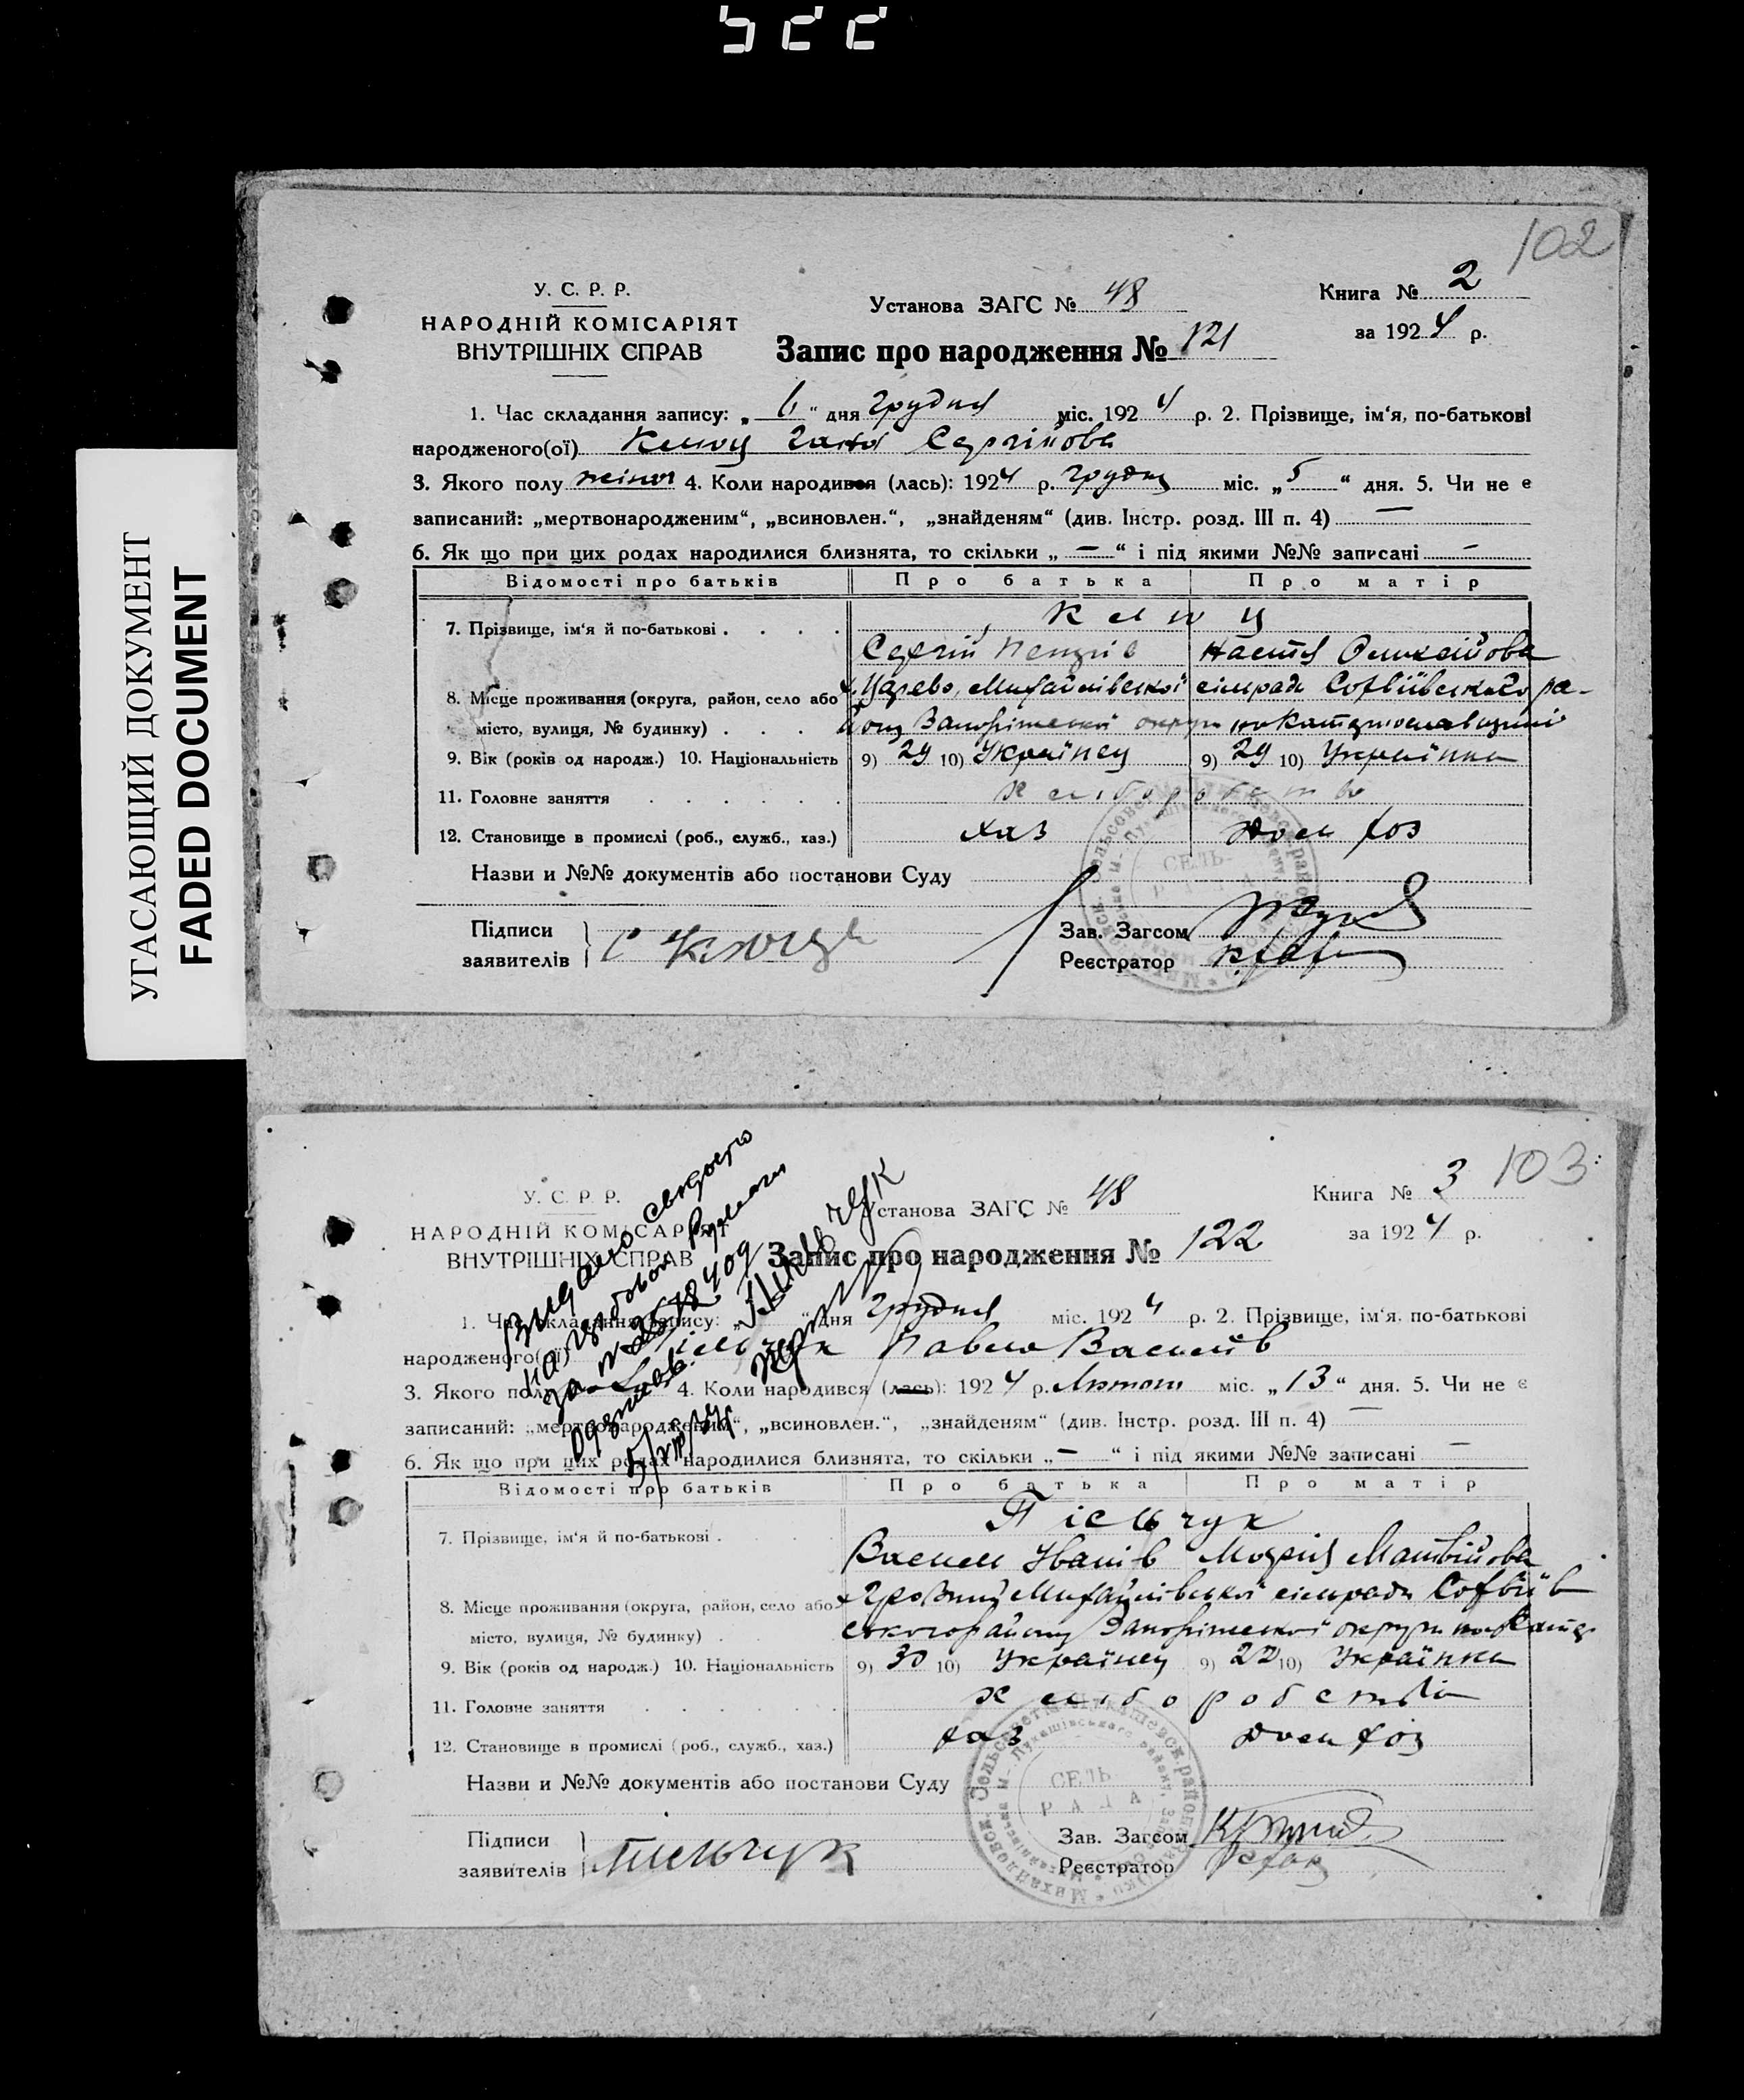 522
УГАСАЮЩИЙ ДОКУМЕНТ
FADED DOCUMENT
102
У. С. Р. Р.
НАРОДНІЙ КОМІСАРІЯТ
ВНУТРІШНІХ СПРАВ
Установа ЗАГС № 48
Книга № 2
за 1924 р.
Запис про народження № 121
1. Час складання запису: „ 6 “ дня Грудня міс. 1924 р. 2. Прізвище, ім‘я, по-батькові
народженого(ої) Клюц Ганна Сергійова
3. Якого полу жіноч 4. Коли народився (лась): 1924 р. Грудня міс. „ 5 “ дня. 5. Чи не є
записаний: „мертвонародженим“, „всиновлен.“, „знайденям“ (див. Інстр. розд. III п. 4) —
6. Як що при цих родах народилися близнята, то скільки „ — “ і під якими №№ записані —
Відомості про батьків Про батька Про матір
7. Прізвище, ім‘я й по-батькові . . . . Клюц
Сергій Настя Олексійова
8. Місце проживання (округа, район, село або х. Царево, Михайлівської сільради Софіївського ра-
місто, вулиця, № будинку) . . . йону Запоріжської округи на Катеринославщині
9. Вік (років од народж.) 10. Національність 9) 29 10) Українец 9) 29 10) Українка
11. Головне заняття . . . . . . Хліборобство
12. Становище в промислі (роб., служб., хаз.) хаз дом хоз
СЕЛЬ-
Назви и №№ документів або постанови Суду
Підписи
заявителів С Клюць
Зав. Загсом
Реєстратор
103
У. С. Р. Р.
НАРОДНІЙ КОМІСАРІЯТ
ВНУТРІШНІХ СПРАВ
Установа ЗАГС № 48
Книга № 3
за 1924 р.
Запис про народження № 122
1. Час складання запису: „ “ дня Грудня міс. 1924 р. 2. Прізвище, ім‘я, по-батькові
народженого(ої) Пільчук Павло Васильів
3. Якого полу 4. Коли народився (лась): 1924 р. Лютого міс. „ 13 “ дня. 5. Чи не є
записаний: „мертвонародженим“, „всиновлен.“, „знайденям“ (див. Інстр. розд. III п. 4) —
6. Як що при цих родах народилися близнята, то скільки „ — “ і під якими №№ записані —
Відомості про батьків Про батька Про матір
7. Прізвище, ім‘я й по-батькові . . . . Пільчук
Василь Іванів Мотрія Матвійова
8. Місце проживання (округа, район, село або Михайлівської сільради Софіїв
місто, вулиця, № будинку) . . ського району Запоріжської округи на Катер.
9. Вік (років од народж.) 10. Національність 9) 30 10) Українец 9) 22 10) Українка
11. Головне заняття . . . . . . Хліборобства
12. Становище в промислі (роб., служб., хаз.) хаз дом хоз
СЕЛЬ
РАДА
Назви и №№ документів або постанови Суду
Підписи
заявителів Пильчук
Зав. Загсом
Реєстратор